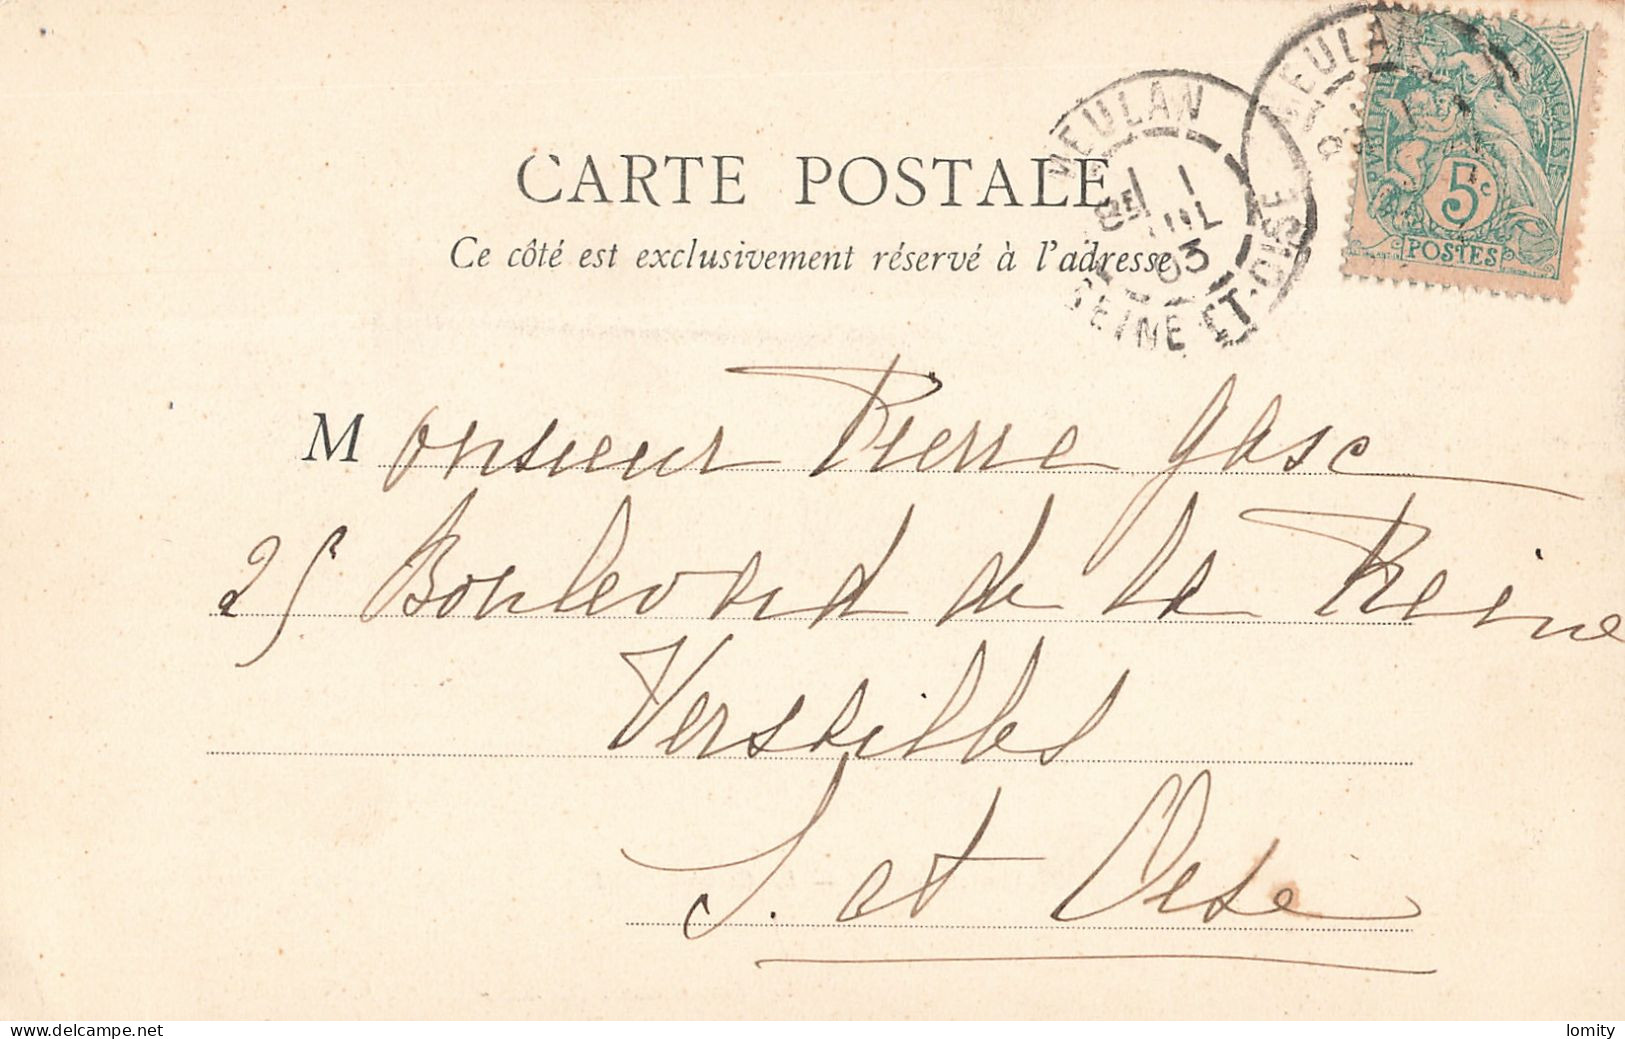 CARTE POSTALE
Ce côté est exclusivement réservé à l'adresse
MEULAN
8E 1 1
JUIL
03
SEINE ET-OISE
MEULAN
RÉPUBLIQUE FRANÇAISE
5c
POSTES
Monsieur Pierre Gasc
25 Boulevard de la Reine
Versailles
S. et Oise
www.delcampe.net
lomity